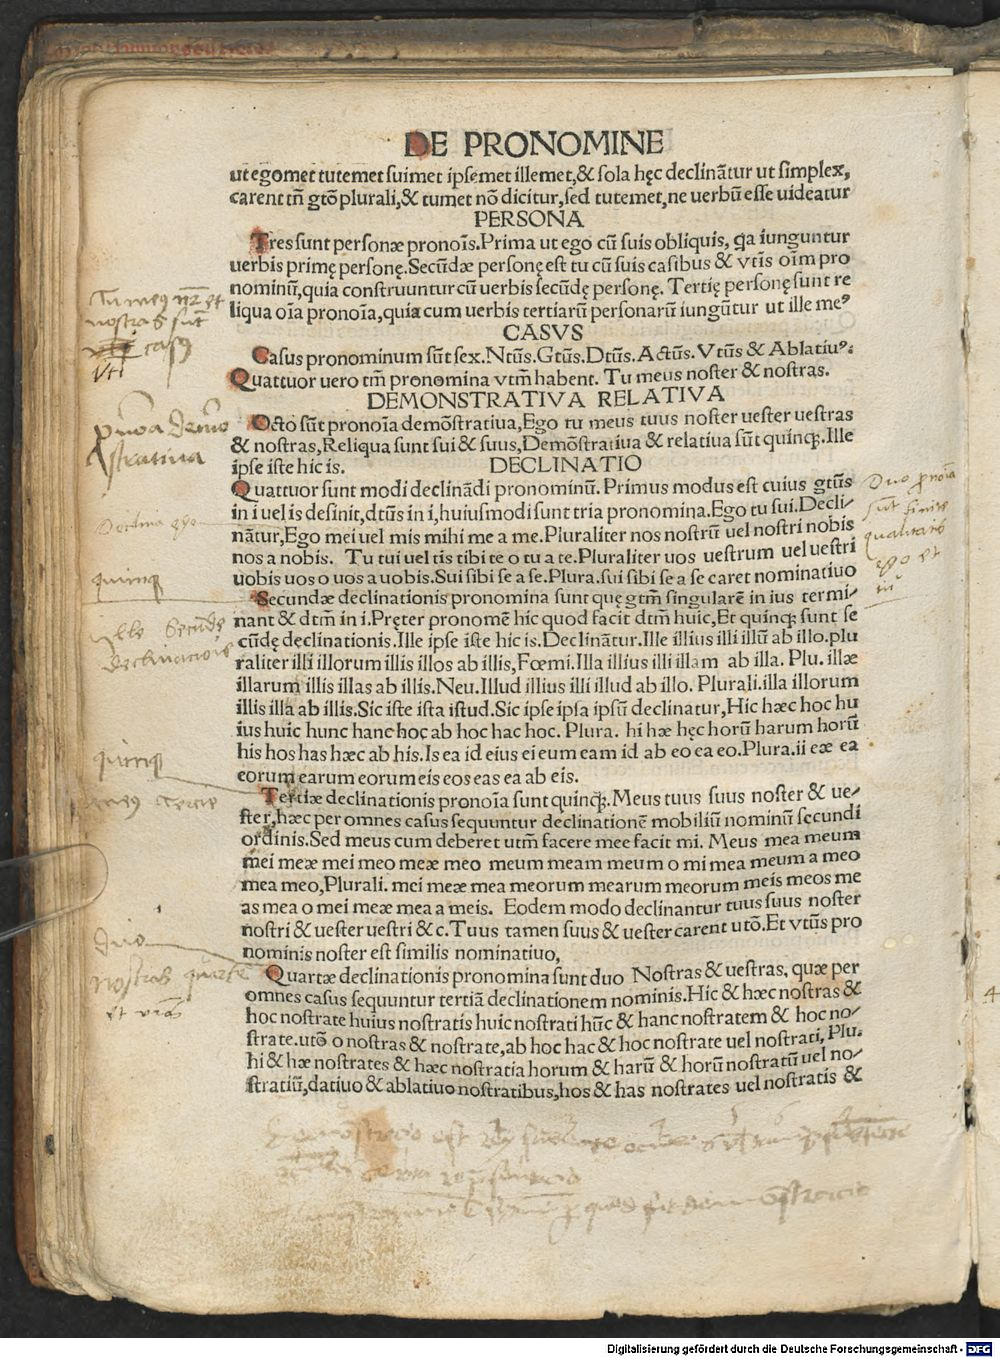 DE PRONOMINE
ut egomet tutemet suimet ipsemet illemet,& sola hęc declinãtur ut simplex,
carent tñ gtõ plurali,& tumet nõ dicitur,sed tutemet,ne uerbũ esse uideatur
PERSONA
Tres sunt personæ pronoĩs.Prima ut ego cũ suis obliquis, qa iunguntur
uerbis primę personę.Secũdæ personę est tu cũ suis casibus & vtĩs oĩm pro
nominũ,quia construuntur cũ uerbis secũdę personę. Tertię personę sunt re
liqua oĩa pronoĩa,quia cum uerbis tertiarũ personarũ iungũtur ut ille meꝰ
CASVS
Casus pronominum sũt sex.Ntũs.Gtũs.Dtũs.Actũs.Vtũs & Ablatiuꝰ.
Quattuor uero tm̃ pronomina vtm̃ habent. Tu meus noster & nostras.
DEMONSTRATIVA RELATIVA
Octo sũt pronoĩa demõstratiua,Ego tu meus tuus noster uester uestras
& nostras,Reliqua sunt sui & suus,Demõstratiua & relatiua sũt quinqꝫ.Ille
ipse iste hic is. DECLINATIO
Quattuor sunt modi declinãdi pronominũ. Primus modus est cuius gtũs
in i uel is desinit,dtũs in i,huiusmodi sunt tria pronomina.Ego tu sui.Decli-
nãtur,Ego mei uel mis mihi me a me.Pluraliter nos nostrũ uel nostri nobis
nos a nobis. Tu tui uel tis tibi te o tu a te.Pluraliter uos uestrum uel uestri
uobis uos o uos a uobis.Sui sibi se a se.Plura.sui sibi se a se caret nominatiuo
Secundæ declinationis pronomina sunt quę gtm̃ singularẽ in ius termi-
nant & dtm̃ in i.Pręter pronomẽ hic quod facit dtm̃ huic,Et quinqꝫ sunt se
cũdę declinationis.Ille ipse iste hic is.Declinãtur.Ille illius illi illũ ab illo.plu
raliter illi illorum illis illos ab illis,Fœmi.Illa illius illi illam ab illa. Plu. illæ
illarum illis illas ab illis.Neu.Illud illius illi illud ab illo. Plurali.illa illorum
illis illa ab illis.Sic iste ista istud.Sic ipse ipsa ipsũ declinatur,Hic hæc hoc hu
ius huic hunc hanc hoc ab hoc hac hoc. Plura. hi hæ hęc horũ harum horũ
his hos has hæc ab his.Is ea id eius ei eum eam id ab eo ea eo.Plura.ii eæ ea
eorum earum eorum eis eos eas ea ab eis.
Tertiæ declinationis pronoĩa sunt quinqꝫ.Meus tuus suus noster & ue-
ster,hæc per omnes casus sequuntur declinationẽ mobiliũ nominũ secundi
ordinis.Sed meus cum deberet utm̃ facere mee facit mi. Meus mea meum
mei meæ mei meo meæ meo meum meam meum o mi mea meum a meo
mea meo,Plurali. mei meæ mea meorum mearum meorum meis meos me
as mea o mei meæ mea a meis. Eodem modo declinantur tuus suus noster
nostri & uester uestri & c.Tuus tamen suus & uester carent utõ.Et vtũs pro
nominis noster est similis nominatiuo,
Quartæ declinationis pronomina sunt duo Nostras & uestras, quæ per
omnes casus sequuntur tertiã declinationem nominis.Hic & hæc nostras &
hoc nostrate huius nostratis huic nostrati hũc & hanc nostratem & hoc no-
strate.utõ o nostras & nostrate,ab hoc hac & hoc nostrate uel nostrati, Plu.
hi & hæ nostrates & hæc nostratia horum & harũ & horũ nostratũ uel no-
stratiũ,datiuo & ablatiuo nostratibus,hos & has nostrates uel nostratis &
nostras sũt
casꝰ
quinqꝫ
quinqꝫ
duo
nostras quarte
Duo
sũt finite
qualitatis
ego et
tu
Digitalisierung gefördert durch die Deutsche Forschungsgemeinschaft - DFG